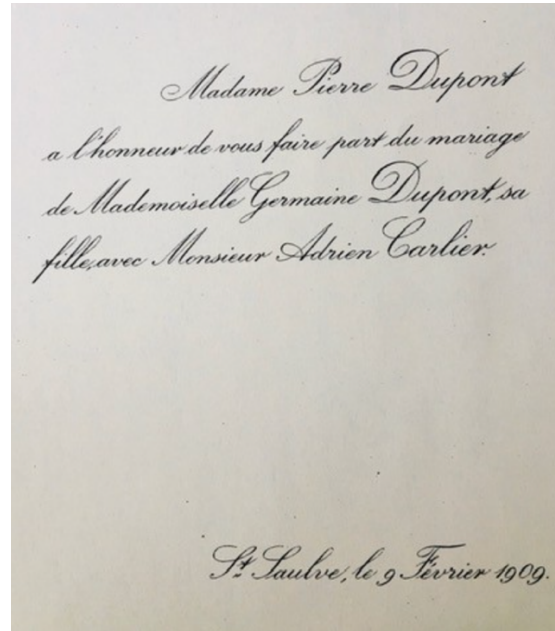 Madame Pierre Dupont
a l'honneur de vous faire part du mariage
de Mademoiselle Germaine Dupont, sa
fille, avec Monsieur Adrien Carlier.
St Saulve, le 9 Février 1909.